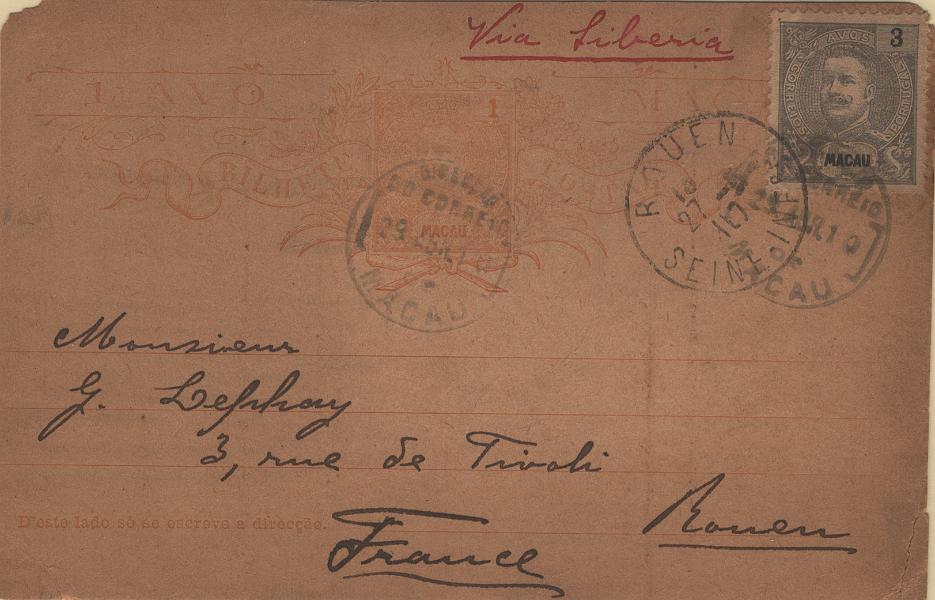 Via Siberia
AVOS 3
CORREIOS
PORTUGAL
MACAU
1 AVO
MACAU
1
BILHETE POSTAL
MACAU
DIRECÇÃO
DO CORREIO
29 MAR. 10
MACAU
ROUEN
SEINE INFRE
CORREIO
MAR. 10
MACAU
Monsieur
G. Lephay
3, rue de Tivoli
Rouen
D'este lado só se escreve a direcção.
France